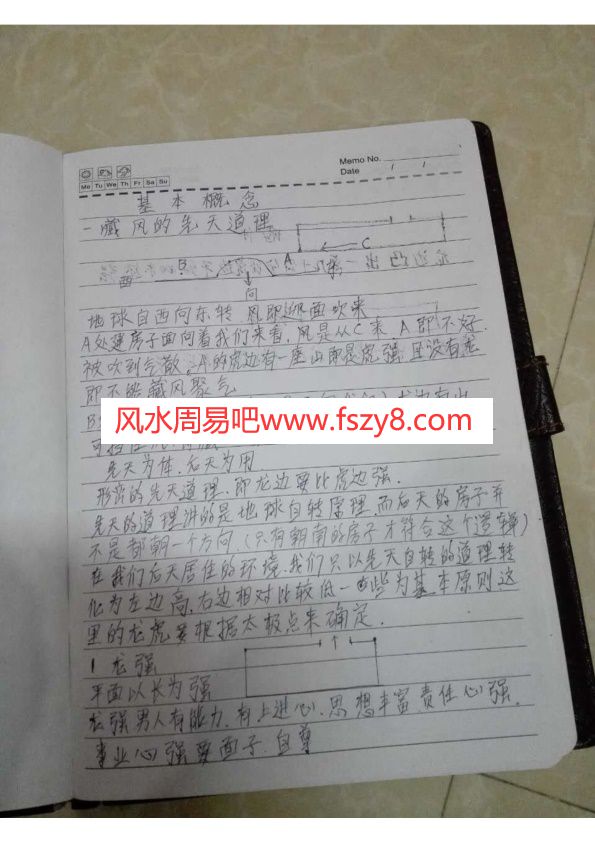 Memo No.
Date
Mo Tu We Th Fr Sa Su
基本概念
一 藏风的先天道理
C
B A
向
地球自西向东转 风即迎面吹来
A处建房子面向着我们来看，风是从C来 A即不好
被吹到气散，A的虎边有一座山即是虎强 且没有龙
即不能藏风聚气
B
风水周易吧www.fszy8.com
先天为体，后天为用
形峦的先天道理，即龙边要比虎边强．
先天的道理讲的是地球自转原理，而后天的房子并
不是都朝一个方向．（只有朝南的房子才符合这个逻辑）
在我们后天居住的环境，我们只以先天自转的道理转
化为左边高，右边相对比较低一些为基本原则，这
里的龙虎要根据太极点来确定．
1 龙强
平面以长为强
龙强男人有能力．有上进心．思想丰富 责任心强．
事业心强 要面子．自尊